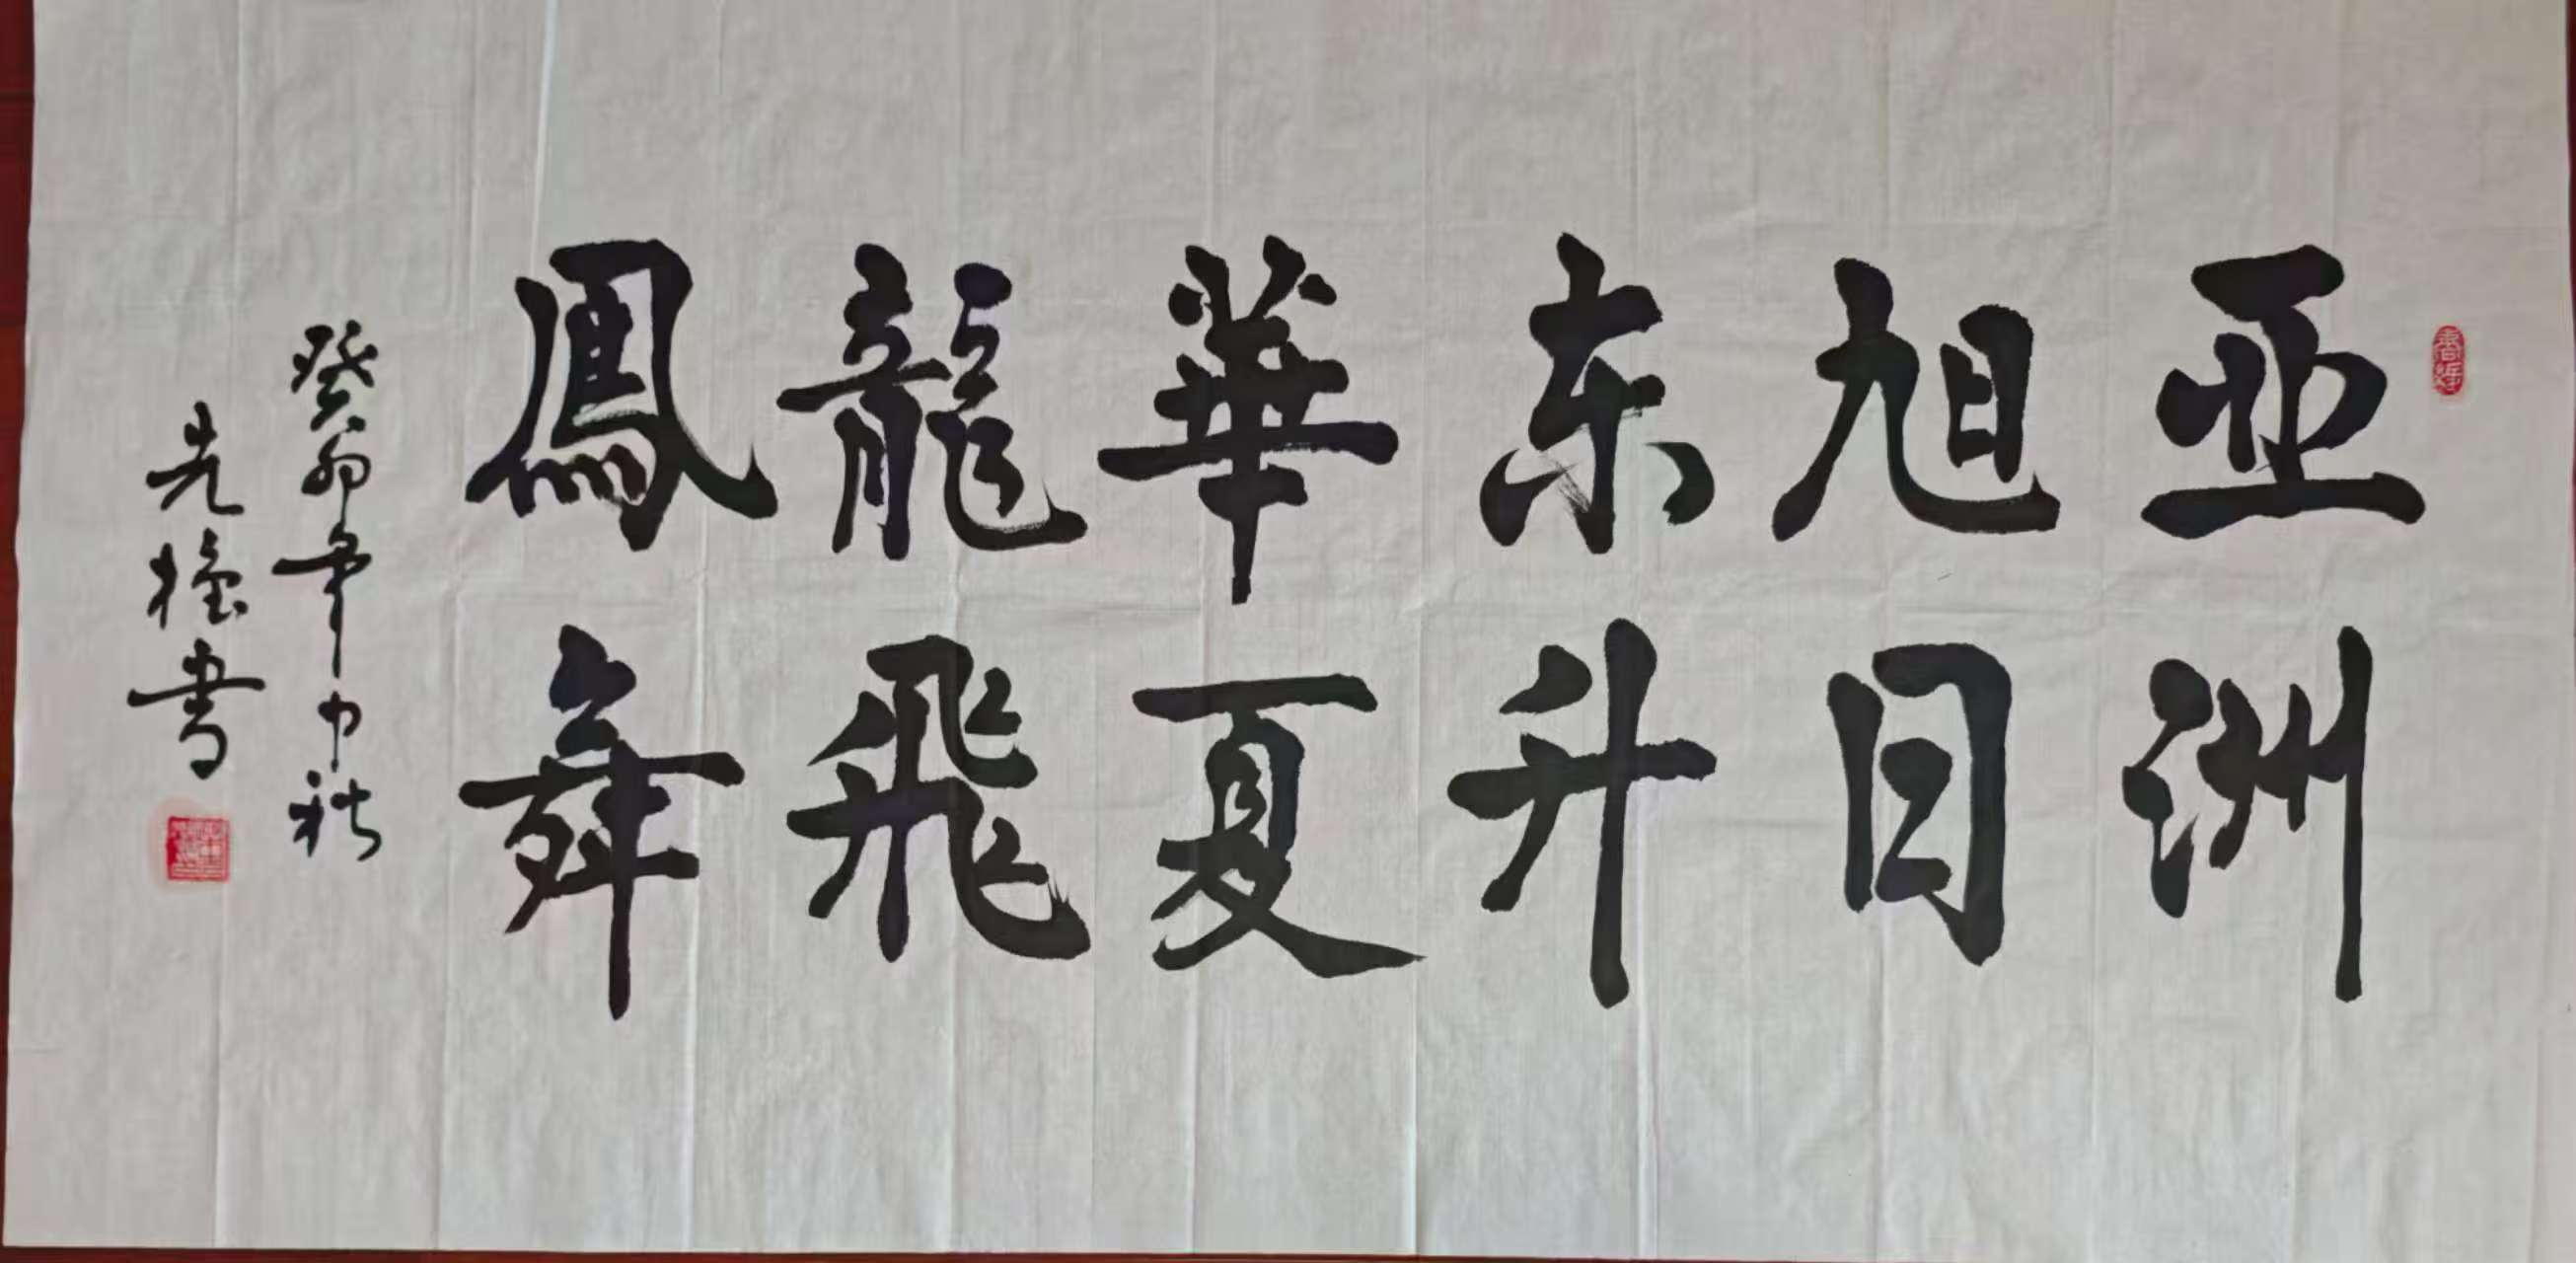 亚洲
旭日
东升
華夏
龍飛
鳳舞
癸卯年中秋
先權書